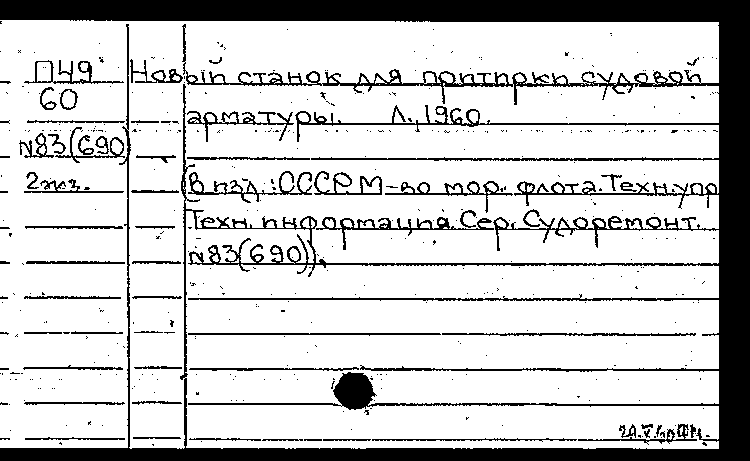 П49 Новый станок для притирки судовой
60 арматуры. Л., 1960.
№83(690)
2экз. (В изд.: СССР. М-во мор. флота. Техн. упр
Техн. информация. Сер. Судоремонт.
№83(690)).